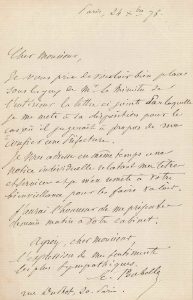 Paris, 24 Xbre 76.
Cher Monsieur,
Je vous prie de vouloir bien placer
sous les yeux de Mr le Ministre de
l'Intérieur la lettre ci jointe dans laquelle
je me mets à sa disposition pour le
cas où il jugerait à propos de me
confier une Préfecture.
Je vous adresse en même temps une
notice individuelle relatant mes titres
espérant bien
bienveillance pour les faire valoir.
J'aurai l'honneur de me présenter
demain matin à votre cabinet.
Agréez, cher monsieur,
l'expression de mes sentiments
les plus sympathiques.
rue Dutot